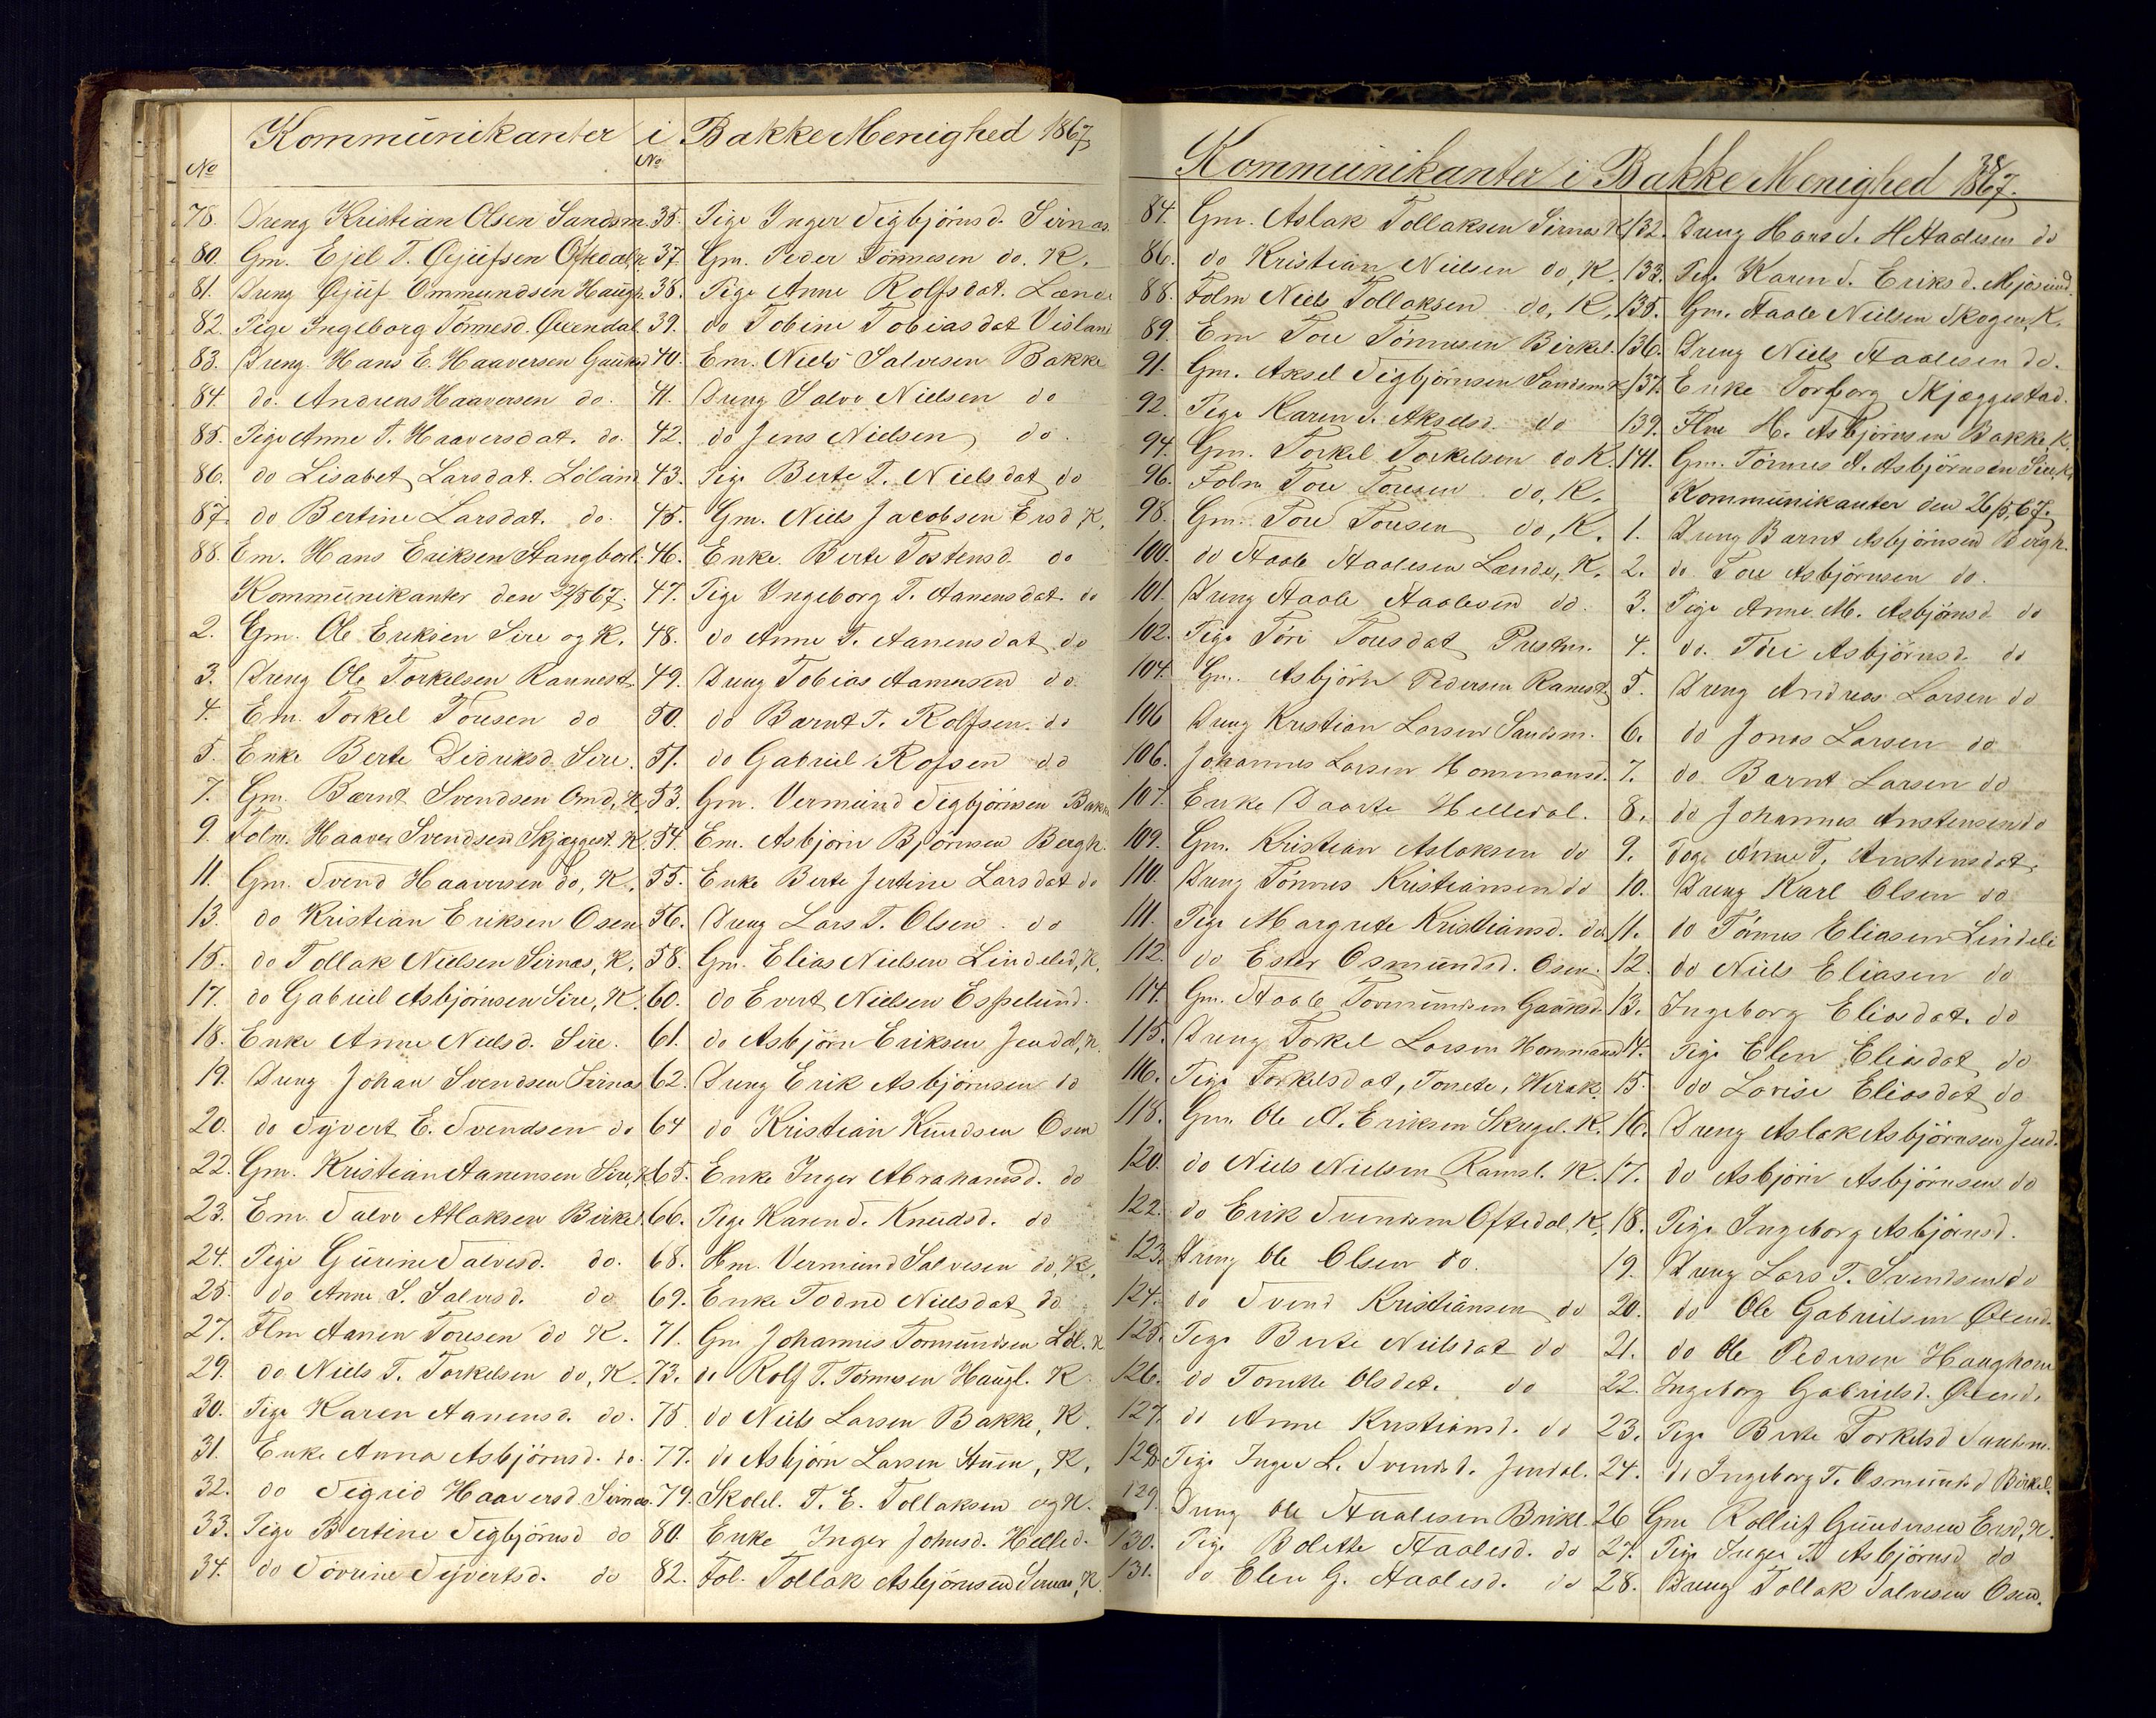 Kommunikanter i Bakke Menighed 1867
No
78. Dreng Kristian Olsen Sandsm.
80. Gm. Ejel T. Øjufsen Oftedal, K.
81. Dreng Øjuf Ommundsen Haugh.
82. Pige Ingeborg Tønnesd. Øvendal
83. Dreng Hans E. Haaversen Gauks
84. do. Andreas Haaversen do.
85. Pige Anne T. Haaversdat. do.
86. do Lisabet Larsdat. Löland
87. do Bertine Larsdat. do.
88. Em. Hans Eriksen Stangborl.
Kommunikanter den 22/5 67.
2. Gm. Ole Eriksen Sire og K.
3. Dreng Ole Torkelsen Rannest.
4. Em. Torkel Toresen do
5. Enke Berte Didriksd. Sire.
7. Gm. Bernt Svendsen Omd, K.
9. Folm. Haaver Svendsen Skjæggest. K.
11. Gm. Svend Haaversen do, K.
13. do Kristian Eriksen Osen
15. do Tollak Nielsen Sirnas, K.
17. do Gabriel Asbjörnsen Sire, K.
18. Enke Anne Nielsd. Sire.
19. Dreng Johan Svendsen Sirnas
20. do Syvert E. Svendsen do
22. Gm. Kristian Aanensen Sire, K.
23. Em. Salve Atlaksen Birkel.
24. Pige Gurine Salvesd. do.
25. do Anne S. Salvesd. do
27. Flm Aanen Toresen do K.
29. do Niels T. Torkelsen do, K.
30. Pige Karen Aanensd. do.
31. Enke Anna Asbjörnsd. do.
32. do Sigrid Haaversd. Sirnas.
33. Pige Bertine Sigbjörnsd do
34. do Sörine Syvertsd. do
No
35. Pige Inger Sigbjörnsd. Sirnas
37. Gm. Peder Tönnesen do. K.
38. Pige Anne Rolfsdat. Lænde
39. do Tobine Tobiasdat Visland
40. Em. Niels Salvesen Bakke
41. Dreng Salve Nielsen do
42. do Jens Nielsen do.
43. Pige Berte T. Nielsdat do
45. Gm. Niels Jacobsen Ersd K.
46. Enke Berte Tostensd. do
47. Pige Ingeborg T. Aanensdat. do
48. do Anne T. Aanensdat do
49. Dreng Tobias Aamesen do.
50. do Bærnt T. Rolfsen. do
51. do Gabriel Rofsen do
53. Gm. Vermund Sigbjörnsen Bakke
54. Em. Asbjörn Björnsen Bergh.
55. Enke Berte Jertine Larsdat do
56. Dreng Lars T. Olsen do
58. Gm. Elias Nielsen Lindeled, K.
60. do Evert Nielsen Espelund.
61. do Asbjörn Eriksen Jendal, K.
62. Dreng Erik Asbjörnsen do
64 do Kristian Knudsen Osen
65. Enke Inger Abrahamsd. do
66. Pige Karen S. Knudsd. do
68. Hm. Vermund Salvesen do, K.
69. Enke Todne Nielsdat do
71. Gm Johannes Tormundsen Löl. K
73. do Rolf T. Tönnesen Haugl. K
75. do Niels Larsen Bakke, K.
77. do Asbjörn Larsen Stuen, K.
79. Skolel. T. E. Tollaksen og K.
80. Enke Inger Johnsd. Helled.
82. Fol. Tollak Asbjörnsen Sirnas, K.
38
Kommunikanter i Bakke Menighed 1867.
84. Gm. Aslak Tollaksen Sirnas K
86. do Kristian Nielsen do, K.
88. Folm Niels Tollaksen do, K.
89. Em Tore Tönnesen Birkel.
91. Gm. Aksel Sigbjörnsen Sandsm. K
92. Pige Karen S. Akselsd. do
94. Gm. Torkel Torkelsen do K.
96. Folm Tore Toresen do, K.
98. Gm. Tore Toresen do, K.
100. do Staale Staalesen Lænde, K.
101. Dreng Staale Staalesen do.
102. Pige Töri Toresdat Prestm.
104. Gm. Asbjörn Pedersen Ranest.
106 Dreng Kristian Larsen Sandsm.
106. Johannes Larsen Hommansd.
107. Enke Daarte Helledal.
109. Gm. Kristian Aslaksen do
110. Dreng Tönnes Kristiansen do
111. Pige Margrete Kristiansd. do
112. do Ester Osmundsd. Osen.
114. Gm. Staale Tormundsen Gauksd.
115. Dreng Torkel Larsen Hommans
116. Pige Torkelsdat, Tonete, Virak.
118. Gm. Ole A. Eriksen Skregel. K.
120. do Niels Nielsen Ramsl. K.
122. do Erik Svendsen Oftedal, K.
123. Dreng Ole Olsen do.
124. do Svend Kristiansen do
125. Pige Berte Nielsdat do
126. do Tonette Olsdat. do
127. do Anne Kristiansd. do
128. Pige Inger L. Svendsd. Jendal.
129. Dreng Ole Staalesen Birkel.
130. Pige Bolette Staalesd. do
131. do Elen G. Staalesd. do
132. Dreng Hans S. H Staalesen do
133. Pige Karen S. Eriksd. Mjösund
135. Gm. Staale Nielsen Skogen, K.
136. Dreng Niels Staalesen do.
137. Enke Torborg Skjæggestad.
139. Flm H. Asbjörnsen Bakke, K.
141. Gm. Tönnes A. Asbjörnsen Sire, K.
Kommunikanter den 26/5, 67.
1. Dreng Barnt Asbjörnsen Bergh.
2. do Tore Asbjörnsen do.
3. Pige Anne M. Asbjörnsd. do
4. do. Töri Asbjörnsd. do
5. Dreng Andreas Larsen do
6. do Jonas Larsen do
7. do Barnt Larsen do
8. do Johannes Anstensen do
9. Pige Anne T. Anstensdat.
10. Dreng Karl Olsen do
11. do Tönnes Eliasen Lindeli
12. do Niels Eliasen do
13. Ingeborg Eliasdat. do
14. Pige Elen Eliasdat do
15. do Lovise Eliasdat do
16. Dreng Aslak Asbjörnsen Jend.
17. do Asbjörn Asbjörnsen do
18. Pige Ingeborg Asbjörnsd.
19. Dreng Lars T. Svendsen do
20. do Ole Gabrielsen Øvend.
21. do Ole Pedersen Haughom
22. Ingeborg Gabrielsd. Øvend.
23. Pige Berte Torkelsd Sandsm.
24. do Ingeborg T. Osmundsd Birkel.
26 Gm Rolleif Gundersen Ersd, K.
27. Pige Inger T. Asbjörnsd do
28. Dreng Tollak Salvesen Osen.